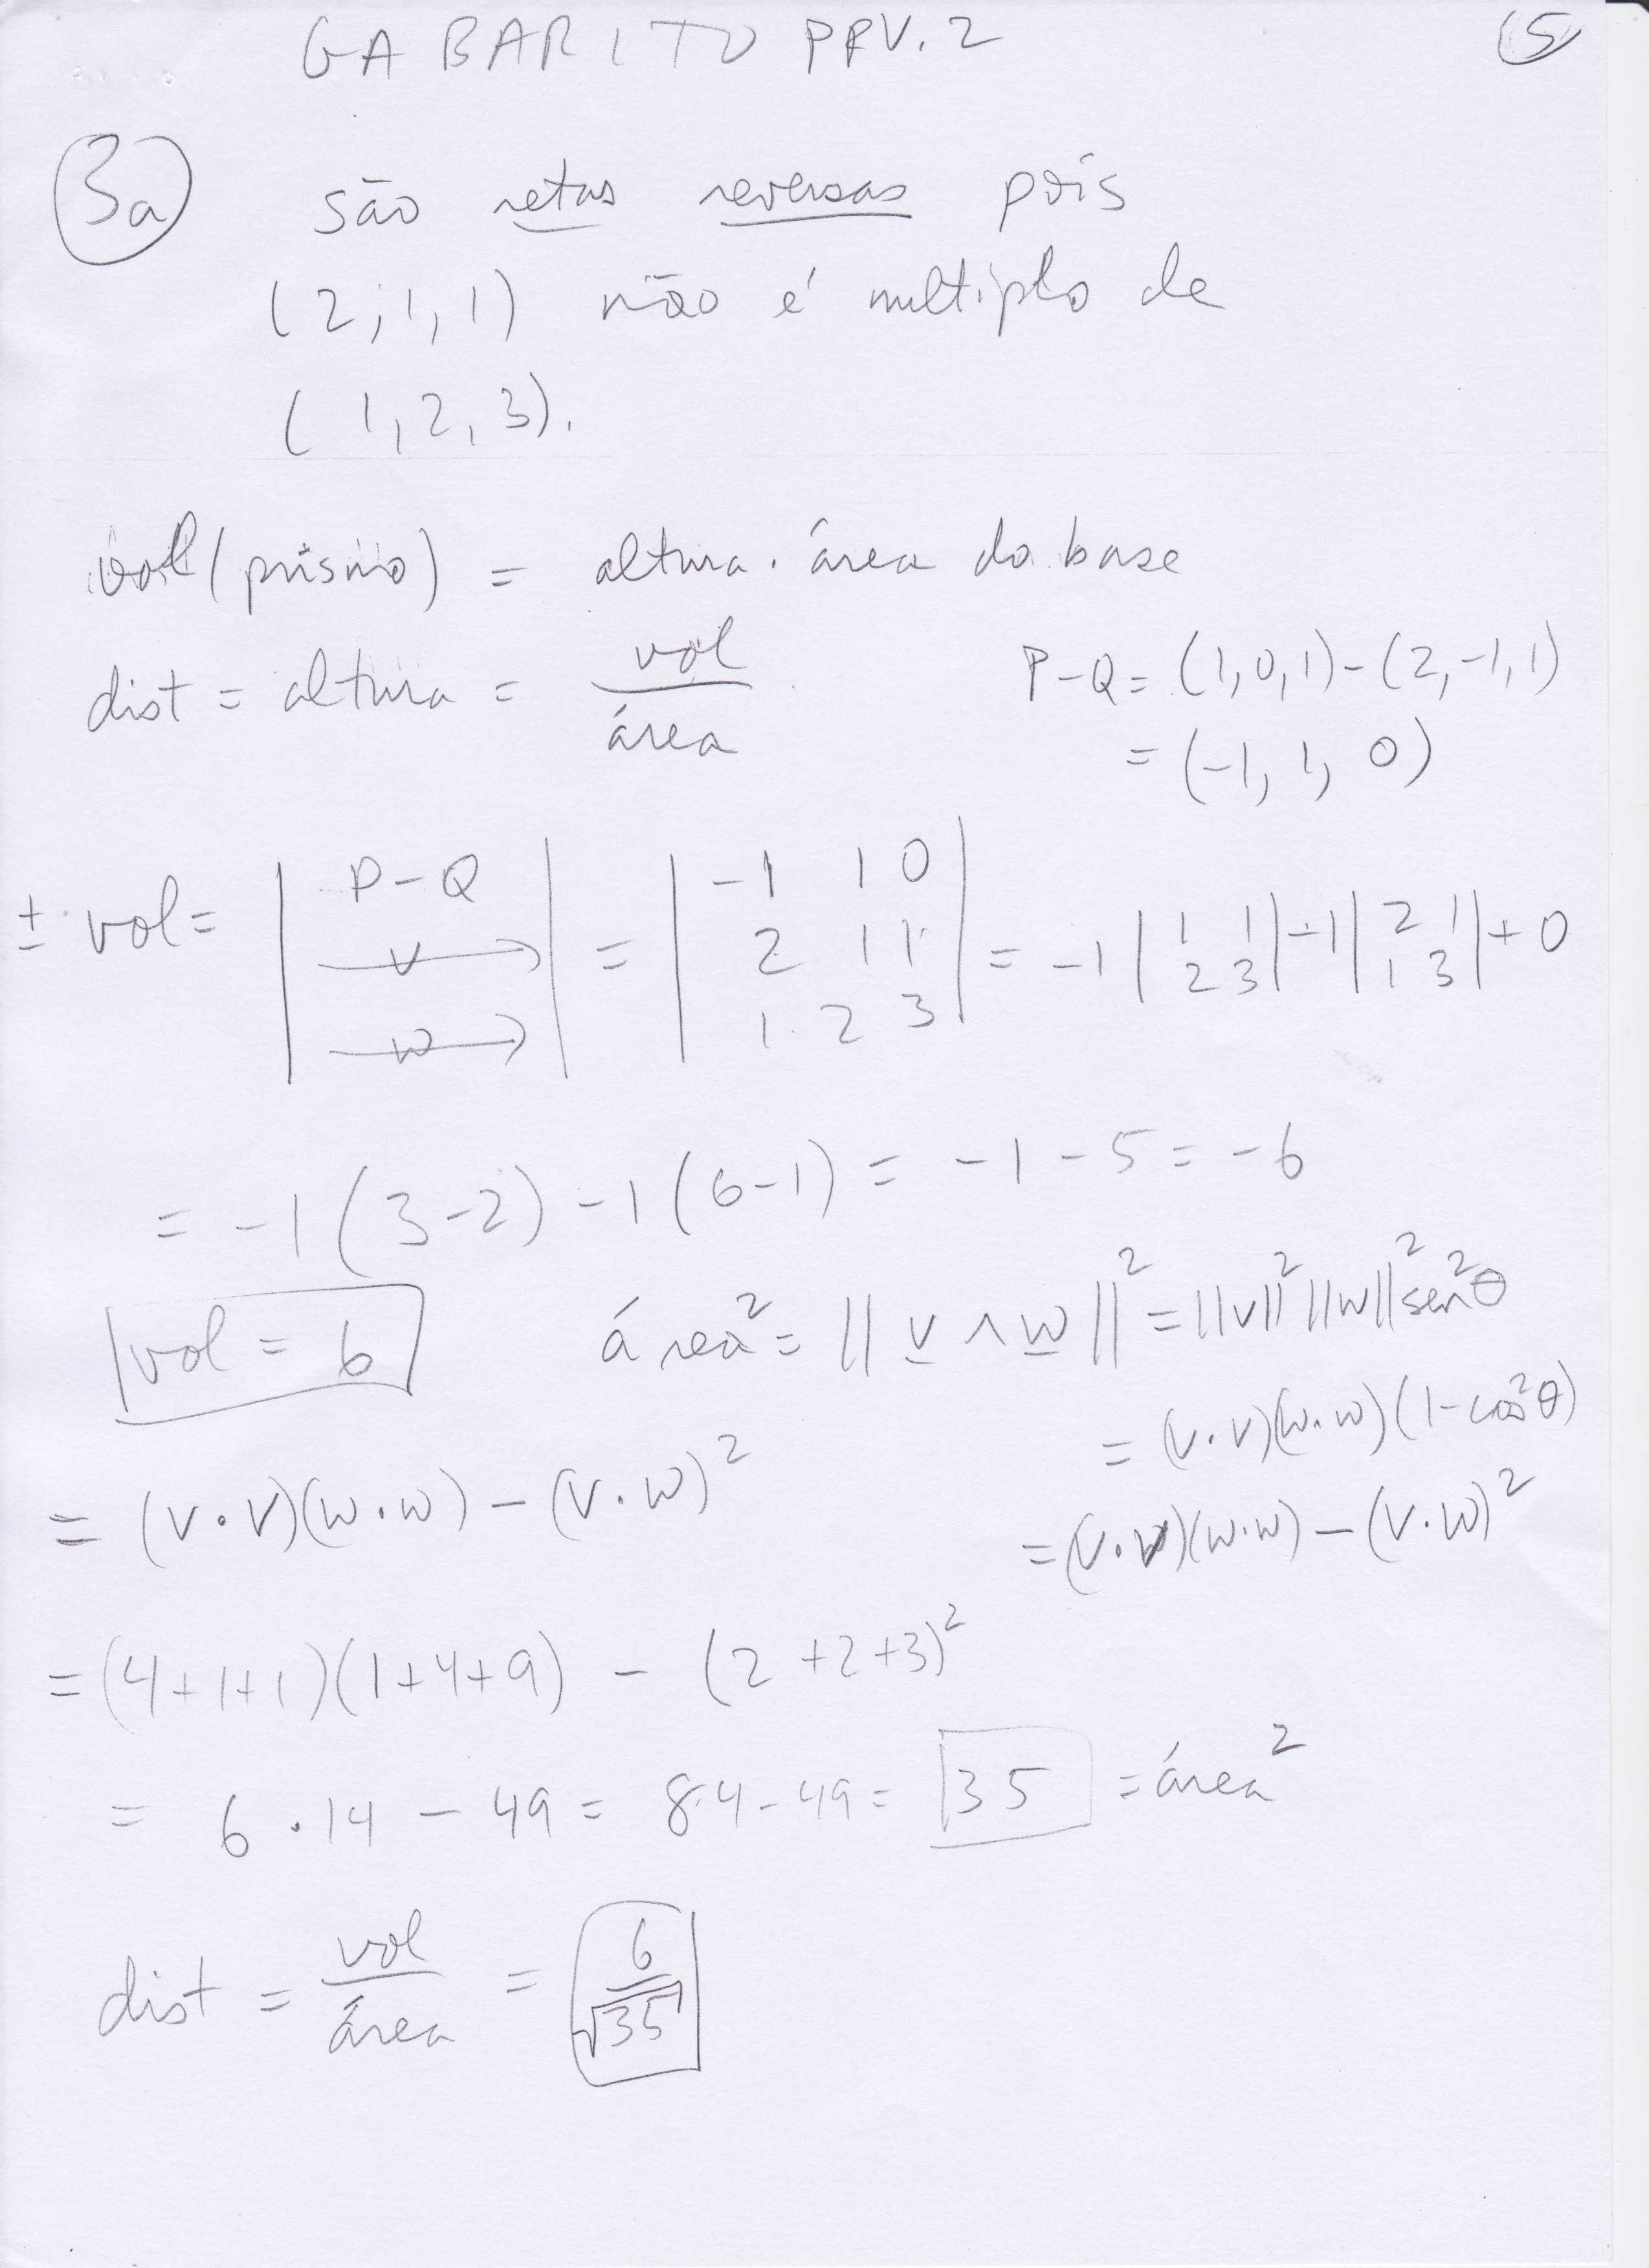 GABARITO PRV. 2
5
3a são retas reversas pois
(2, 1, 1) não é multiplo de
(1, 2, 3).
vol (prisma) = altura . área da base
dist = altura = vol / área
P-Q = (1,0,1)-(2,-1,1)
= (-1, 1, 0)
± vol = | P-Q ; v ; w | = | -1 1 0 ; 2 1 1 ; 1 2 3 | = -1 | 1 1 ; 2 3 | -1 | 2 1 ; 1 3 | + 0
= -1 (3-2) -1 (6-1) = -1 - 5 = -6
vol = 6
área² = || v ∧ w ||² = ||v||² ||w||² sen²θ
= (v·v)(w·w)(1-cos²θ)
= (v·v)(w·w) - (v·w)²
= (v·v)(w·w) - (v·w)²
= (4+1+1)(1+4+9) - (2+2+3)²
= 6 · 14 - 49 = 84 - 49 = 35 = área²
dist = vol / área = 6 / √35